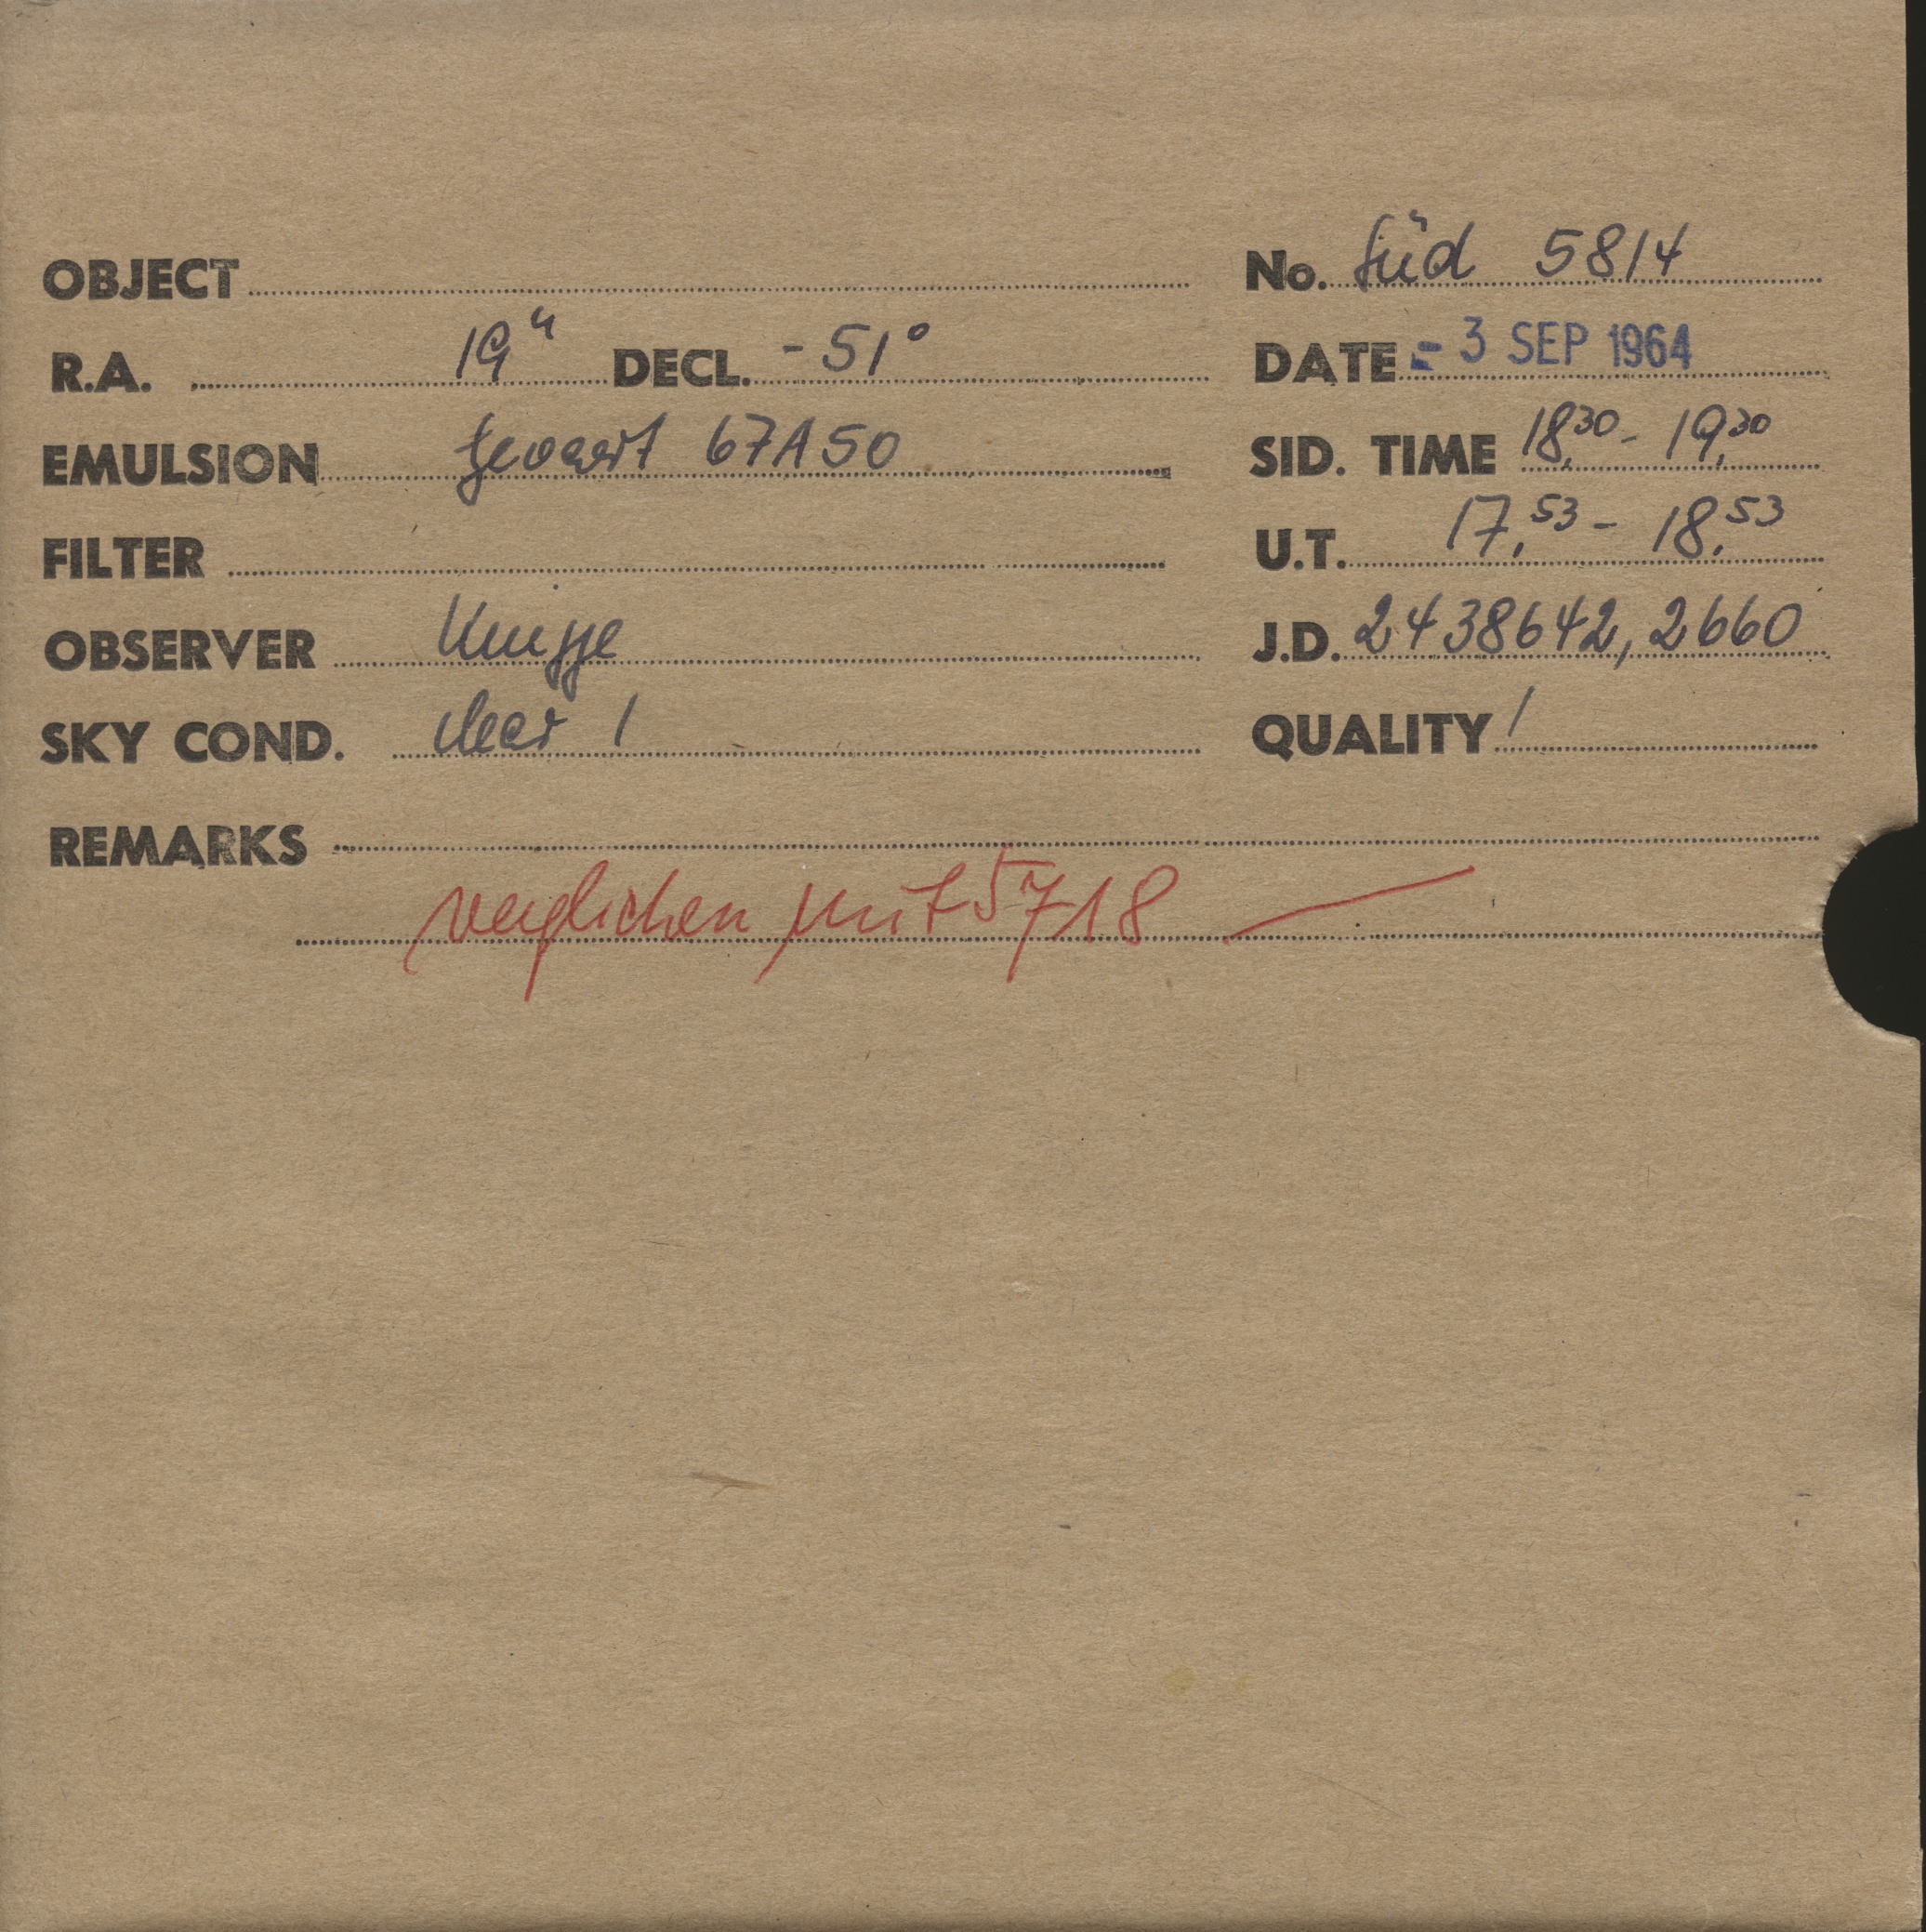 OBJECT
No. Süd 5814
R.A. 19h DECL. -51°
DATE - 3 SEP 1964
EMULSION Gevaert 67A50
SID. TIME 18,30 - 19,30
FILTER
U.T. 17,53 - 18,53
OBSERVER Knigge
J.D. 2438642,2660
SKY COND. clear 1
QUALITY 1
REMARKS
verglichen mit 5718 —